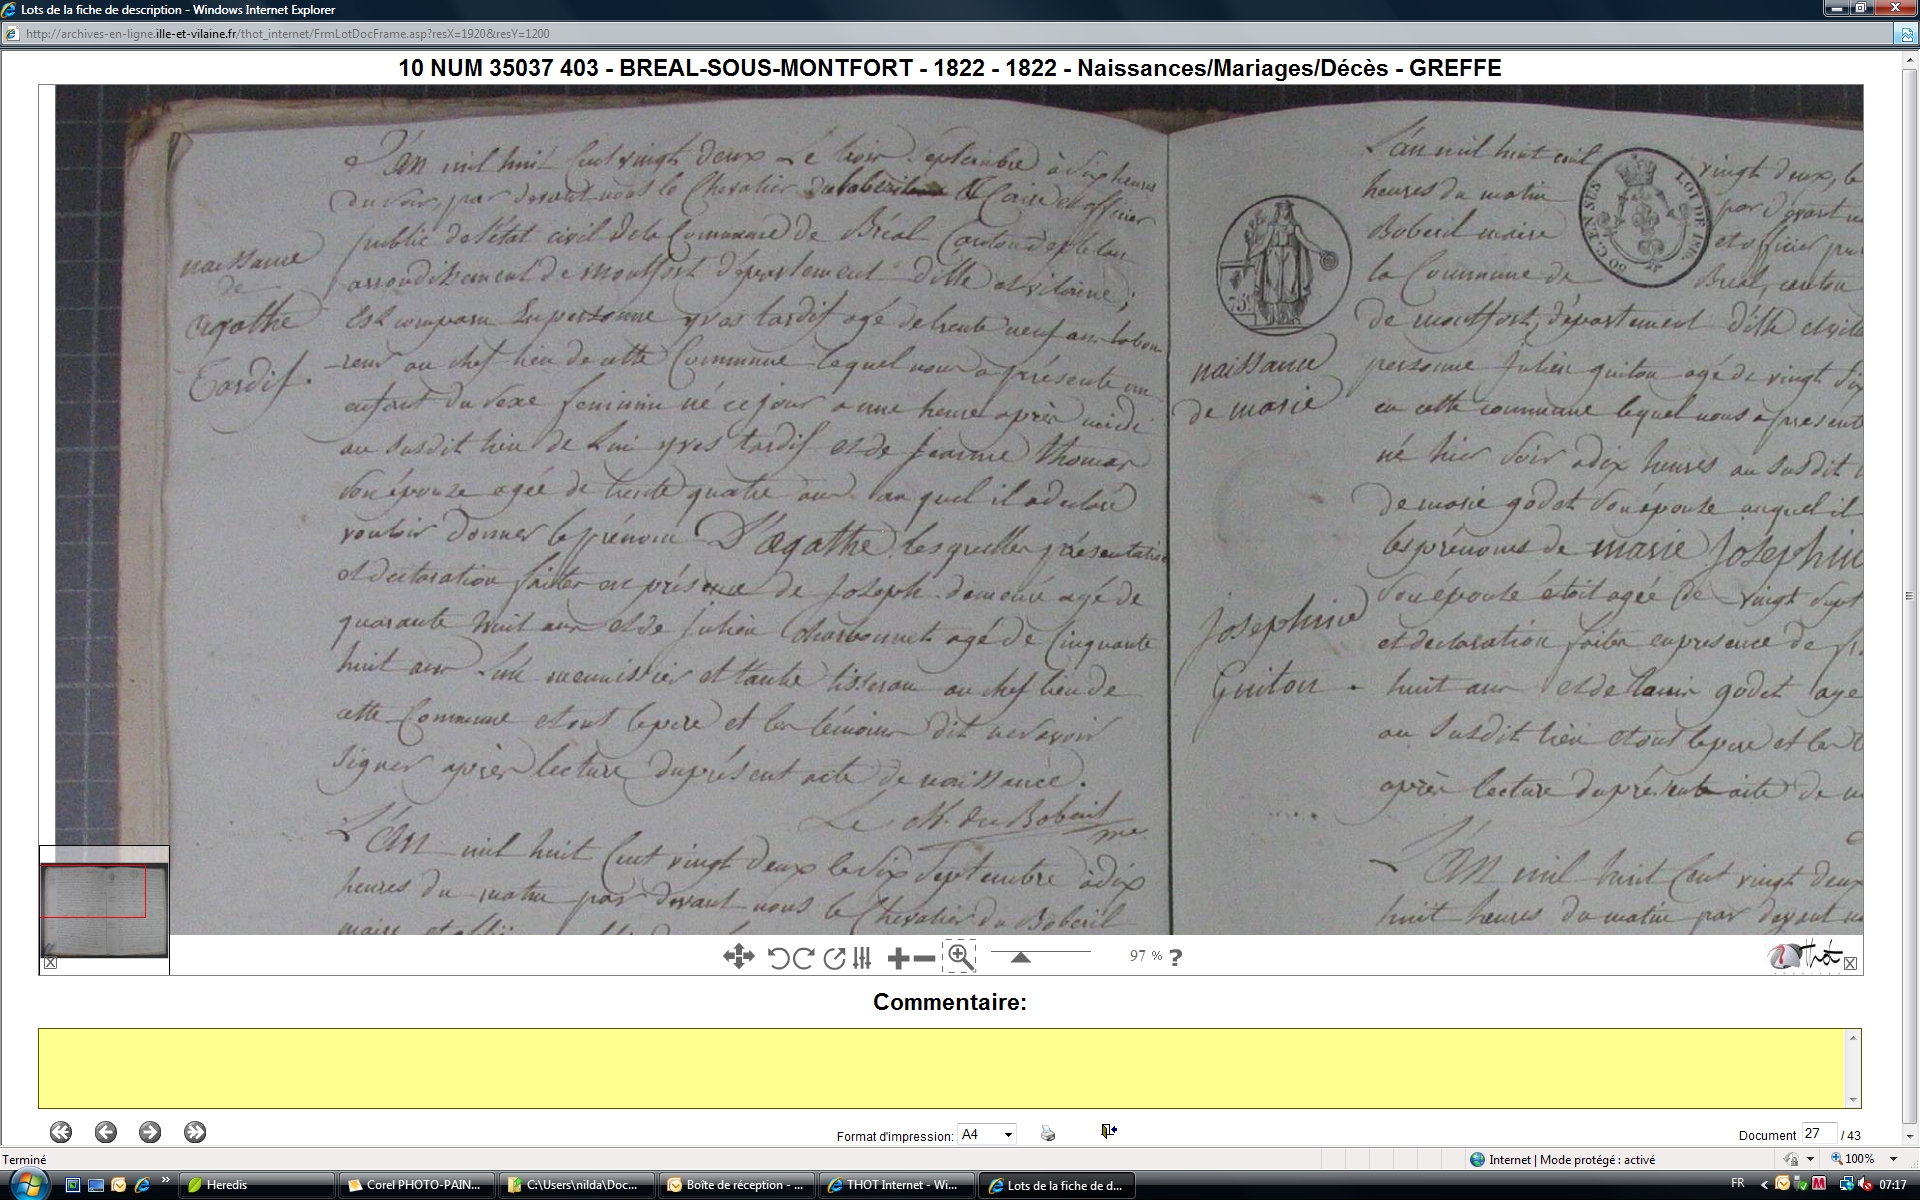 Lots de la fiche de description - Windows Internet Explorer
http://archives-en-ligne.ille-et-vilaine.fr/thot_internet/FrmLotDocFrame.asp?resX=1920&resY=1200
10 NUM 35037 403 - BREAL-SOUS-MONTFORT - 1822 - 1822 - Naissances/Mariages/Décès - GREFFE
naissance
de
agathe
Tardif.
L'an mil huit cent vingt deux Le trois Septembre à Six heures
du soir, par devant nous le Chevalier du bobéril Maire et officier
public de l'état civil de la Commune de Bréal Canton de plelan
arrondissement de montfort département d'ille et vilaine;
Est comparu En personne yves tardif agé de trente neuf ans labou
-reur au chef lieu de cette Commune lequel nous a présenté un
enfant du Sexe feminin né ce jour a une heure après midi
au susdit lieu de Lui yves tardif et de Jeanne thomas
son épouze agée de trente quatre ans auquel il a declaré
vouloir donner le prénom D'agathe, lesquelles présentation
et declaration faites en présence de Joseph demouré agé de
quarante huit ans et de julien Charbonnet agé de Cinquante
huit ans L'un menuisier et l'autre tisseran au chef lieu de
cette Commune et ont le pere et les témoins dit ne savoir
signer après lecture du présent acte de naissance.
Le Ch. du Bobéril
me.
L'An mil huit Cent vingt deux le Six Septembre à dix
heures du matin par devant nous le Chevalier du Bobéril
maire et
naissance
de marie
Josephine
Guiton.
75c
50 C. EN SUS
LOI DE 1816.
L'an mil huit cent vingt deux, le
heures du matin par devant n
Bobéril maire et officier pu
la Commune de Bréal, canton
de montfort, département d'ille et vila
personne Julien guiton agé de vingt six
en cette commune lequel nous a présent
né hier soir a dix heures au susdit
de marie godet son épouse auquel il
les prénoms de marie Josephin
son épouse étoit agée de vingt sept
et declaration faites en presence de
huit ans et de louis godet age
au susdit lieu et ont le pere et les
après lecture du présent acte de n
L'An mil huit Cent vingt deux
huit heures du matin par devant n
97 %
?
Thot
Commentaire:
Format d'impression: A4
Document 27 / 43
Terminé
Internet | Mode protégé : activé
100%
Heredis
Corel PHOTO-PAIN...
C:\Users\nilda\Doc...
Boîte de réception - ...
THOT Internet - Wi...
Lots de la fiche de d...
FR
07:17